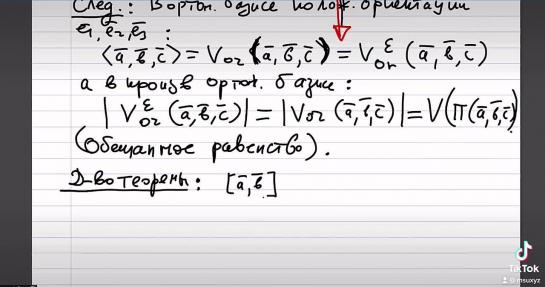 След.: В ортон. базисе полож. ориентации
e̅₁, e̅₂, e̅₃ :
⟨a̅, b̅, c̅⟩ = Vor (a̅, b̅, c̅) = V^ε_or (a̅, b̅, c̅)
а в произв ортон. базисе :
| V^ε_or (a̅, b̅, c̅)| = |Vor (a̅, b̅, c̅)| = V(П(a̅, b̅, c̅)
(обещанное равенство).
Д-во теоремы : [a̅, b̅]
TikTok
@msuxyz